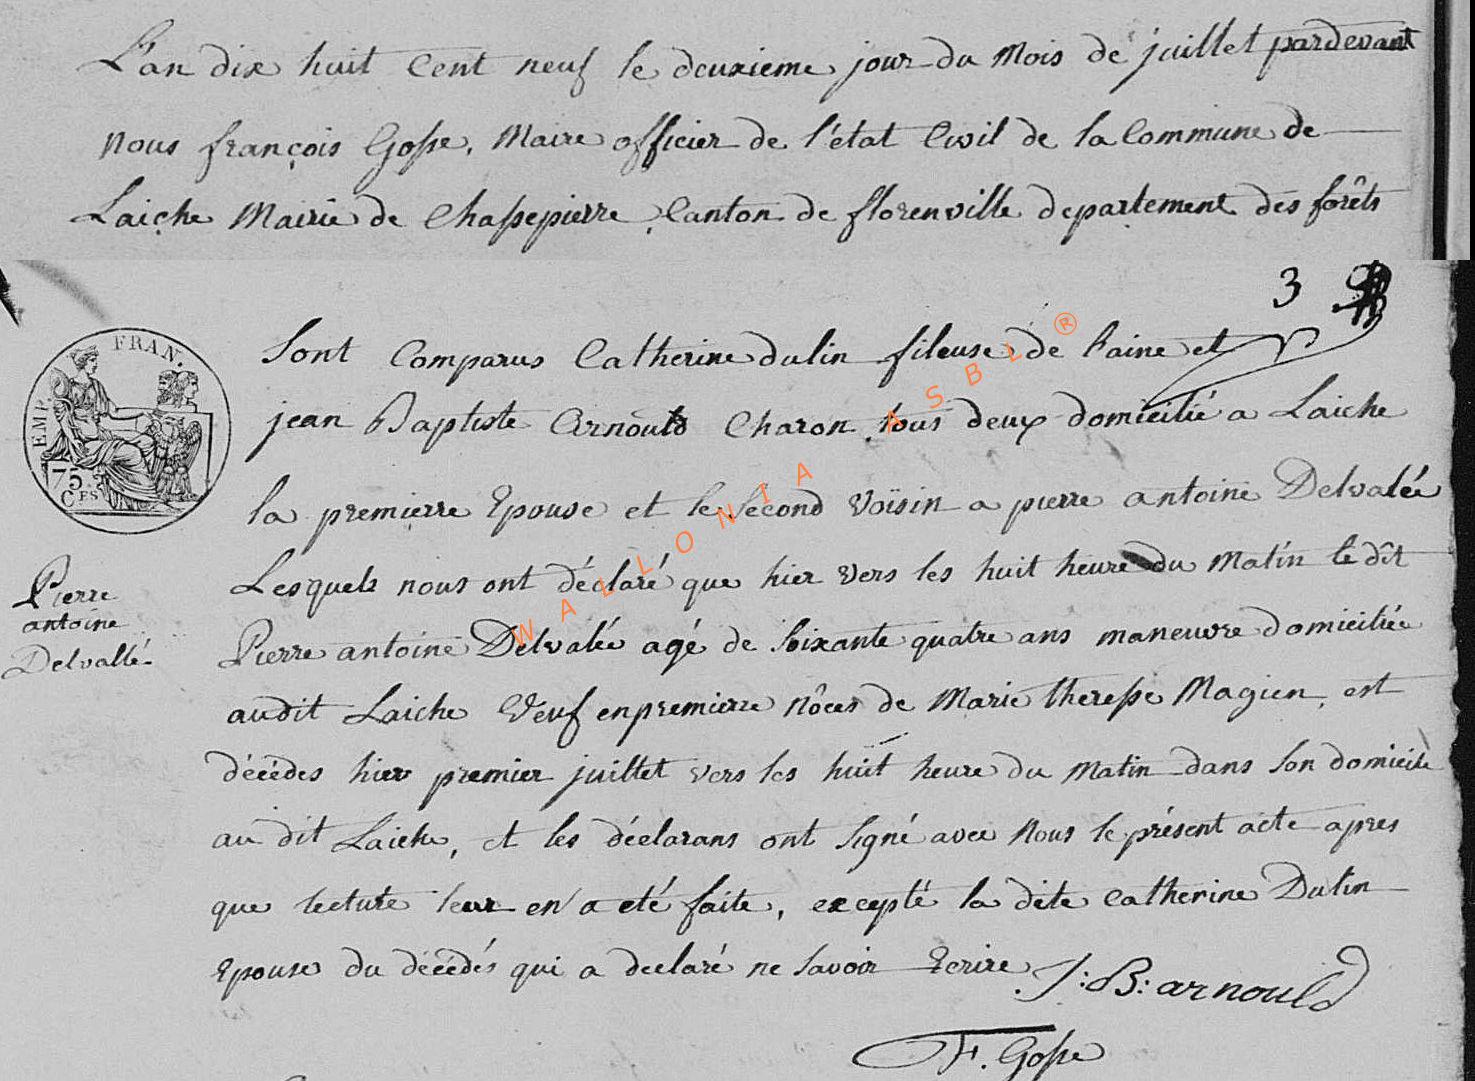 L'an dix huit Cent neuf le deuxieme jour du Mois de juillet pardevant
nous françois Gosse, Maire officier de l'état Civil de la Commune de
Laiche Mairie de Chassepierre, Canton de florenville departement des forêts
3
FRAN.
EMP.
75
CES
Sont Comparus Catherine dulin fileuse de laine et
jean Baptiste Arnould Charon tous deux domicilié a Laiche
la premierre Epouse et le Second Voïsin a pierre antoine Delvalée
Lesquels nous ont déclaré que hier vers les huit heure du Matin le dît
Pierre antoine Delvalée agé de soixante quatre ans maneuvre domiciliée
audit Laiche Veuf en premierre nôces de Marie Theresse Magien, est
décédes hier premier juillet vers les huit heure du Matin dans son domicile
au dit Laiche, et les déclarans ont signé avec Nous le présent acte apres
que lecture leur en a eté faite, excepté la dite Catherine Dulin
Epouse du décédés qui a declaré ne savoir Ecrire
Pierre
antoine
Delvallé
J: B: arnould
F. Gosse
WALLONIA ASBL ®